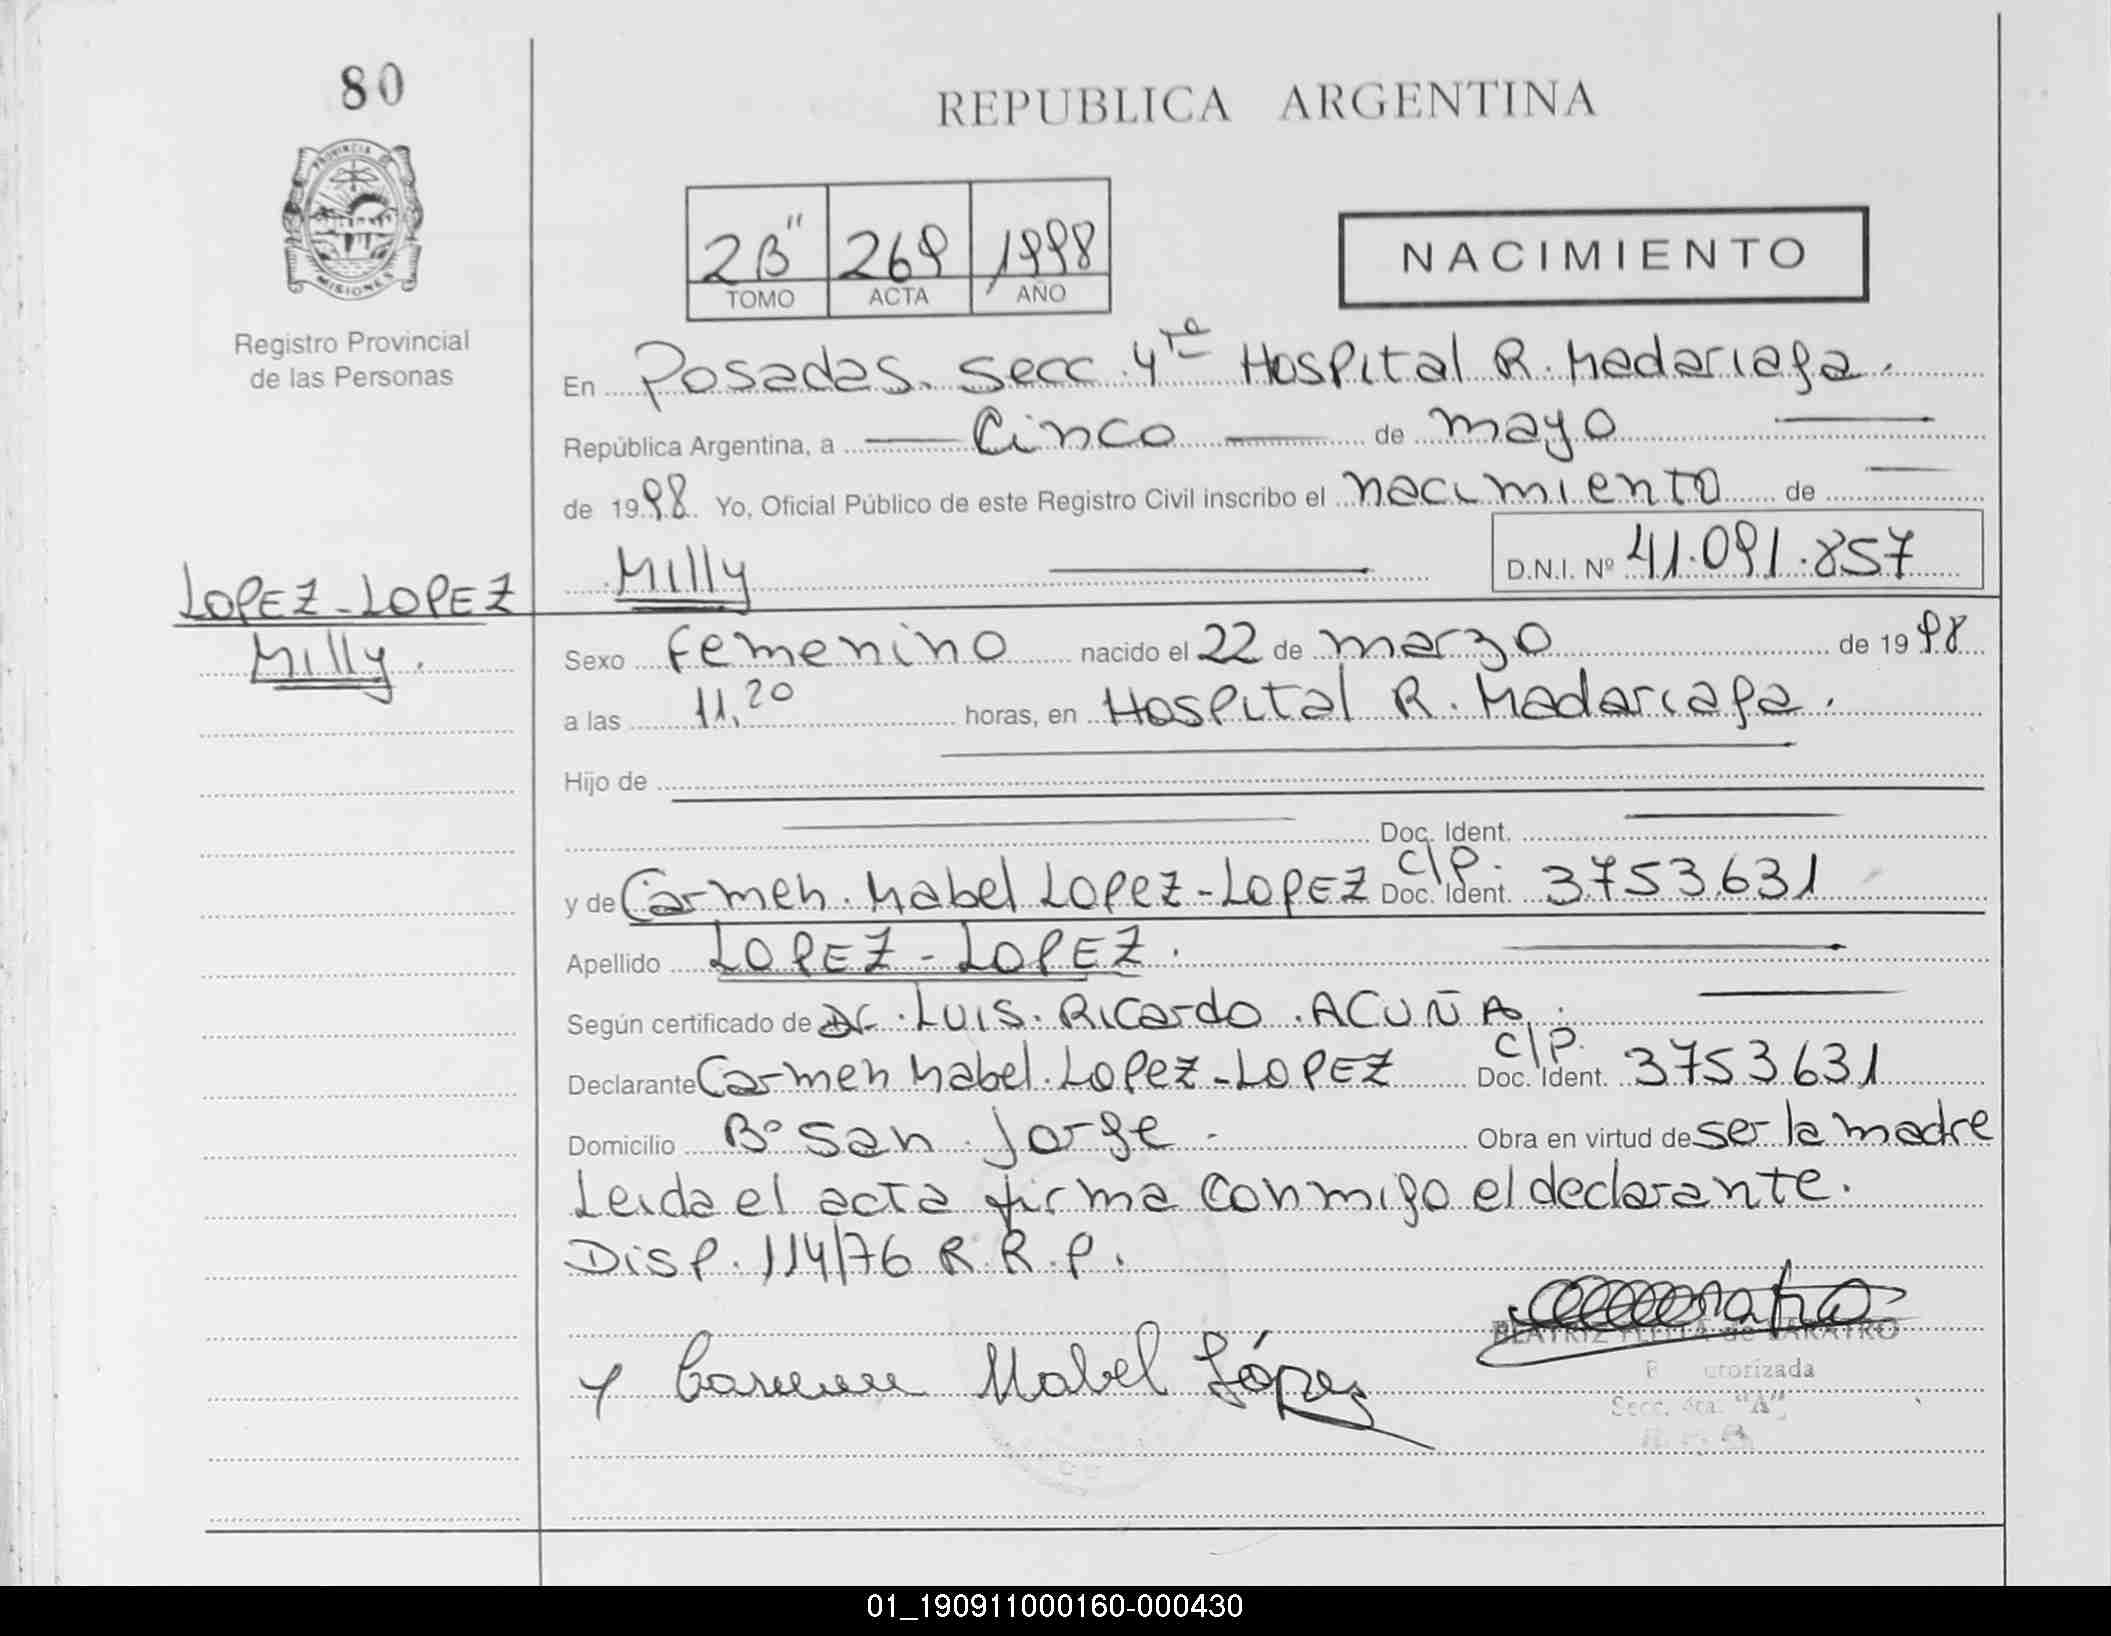 80
REPUBLICA ARGENTINA
PROVINCIA DE
MISIONES
Registro Provincial
de las Personas
2B" 269 1998
TOMO ACTA AÑO
NACIMIENTO
En Posadas. Secc. 4ta Hospital R. Madariaga.
República Argentina, a Cinco de mayo
de 1998. Yo, Oficial Público de este Registro Civil inscribo el nacimiento de
Milly D.N.I. Nº 41.091.857
LOPEZ-LOPEZ
Milly.
Sexo femenino nacido el 22 de marzo de 1998
a las 11,20 horas, en Hospital R. Madariaga.
Hijo de
Doc. Ident.
y de Carmen Mabel Lopez-LOPEZ Doc. Ident. C/P. 3753.631
Apellido LOPEZ-LOPEZ.
Según certificado de Dr. Luis. Ricardo. ACUÑA.
Declarante Carmen Mabel. Lopez-LOPEZ Doc. Ident. C/P. 3753.631
Domicilio Bº San Jorge - Obra en virtud de ser la madre
Leida el acta firma conmigo el declarante.
Disp. 114/76 R.R.P.
Carmen Mabel López
BEATRIZ de
Secc. 4ta. "A"
01_190911000160-000430